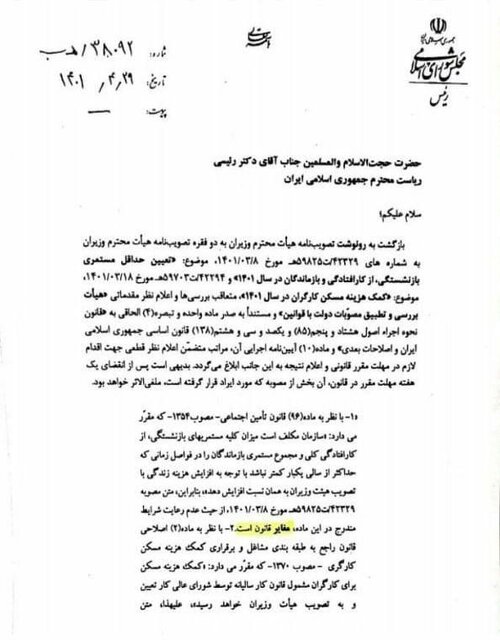 جمهوری اسلامی ایران
مجلس شورای اسلامی
رئیس
شماره: ۳۸۰۹۲/هـ ب
تاریخ: ۱۴۰۱/۴/۲۹
پیوست:
حضرت حجت‌الاسلام والمسلمین جناب آقای دکتر رئیسی
ریاست محترم جمهوری اسلامی ایران
سلام علیکم؛
بازگشت به رونوشت تصویب‌نامه هیأت محترم وزیران به دو فقره تصویب‌نامه هیأت محترم وزیران
به شماره های ۴۲۳۲۹/ت۵۹۸۲۵هـ مورخ ۱۴۰۱/۰۳/۸، موضوع: «تعیین حداقل مستمری
بازنشستگی، از کارافتادگی و بازماندگان در سال ۱۴۰۱» و ۴۲۲۹۴/ت۵۹۷۰۳هـ مورخ ۱۴۰۱/۰۳/۱۸،
موضوع: «کمک هزینه مسکن کارگران در سال ۱۴۰۱»، متعاقب بررسی‌ها و اعلام نظر مقدماتی «هیأت
بررسی و تطبیق مصوّبات دولت با قوانین» و مستنداً به صدر ماده واحده و تبصره(۴) الحاقی به «قانون
نحوه اجراء اصول هشتاد و پنجم(۸۵) و یکصد و سی و هشتم(۱۳۸) قانون اساسی جمهوری اسلامی
ایران و اصلاحات بعدی» و ماده(۱۰) آیین‌نامه اجرایی آن، مراتب متضمّن اعلام نظر قطعی جهت اقدام
لازم در مهلت مقرر قانونی و اعلام نتیجه به این جانب ابلاغ می‌گردد. بدیهی است پس از انقضای یک
هفته مهلت مقرر در قانون، آن بخش از مصوبه که مورد ایراد قرار گرفته است، ملغی‌الاثر خواهد بود.
«۱- با نظر به ماده(۹۶) قانون تأمین اجتماعی- مصوب ۱۳۵۴- که مقرّر
می دارد: «سازمان مکلف است میزان کلیه مستمریهای بازنشستگی، از
کارافتادگی کلی و مجموع مستمری بازماندگان را در فواصل زمانی که
حداکثر از سالی یکبار کمتر نباشد با توجه به افزایش هزینه زندگی با
تصویب هیئت وزیران به همان نسبت افزایش دهد»، بنابراین، متن مصوبه
۴۲۳۲۹/ت۵۹۸۲۵هـ مورخ ۱۴۰۱/۰۳/۸، از حیث عدم رعایت شرایط
مندرج در این ماده، مغایر قانون است. ۲- با نظر به ماده(۲) اصلاحی
قانون راجع به طبقه بندی مشاغل و برقراری کمک هزینه مسکن
کارگری - مصوب ۱۳۷۰- که مقرّر می دارد: «کمک هزینه مسکن
برای کارگران مشمول قانون کار سالیانه توسط شورای عالی کار تعیین
و به تصویب هیأت وزیران خواهد رسید»، علیهذا، متن